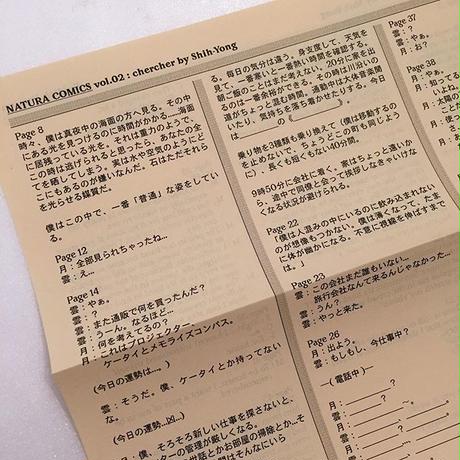 NATURA COMICS vol.02 : chercher by Shih-Yong
Page 8
時々、僕は真夜中の海面の方へ見る。その中
にある光を見つけるのに時間がかかる……海面
に
この時は逃げられると思ったら、あなたの全
てを晒してしまう。実は水や空気のようにど
こにもあるのが嫌いなんだ。石はただそれら
を光らせる媒質だ。
僕はこの中で、一番「普通」な姿をしてい
る。
Page 12
月：全部見られちゃったね…
雲：え…
Page 14
雲：やぁ。
雲：？
雲：また通販で何を買ったんだ？
雲：うーん。なるほど…
月：何を考えてるの？
月：これはプロジェクター、
ケータイとメモライズコンパス。
(今日の運勢は…。)
雲：そうだ。僕、ケータイとか持ってない
な。
(今日の運勢…凶…)
月：僕、そろそろ新しい仕事を探さないと、
ターの管理が厳しくなる。
世話とかお部屋の掃除とか…そ
間はそんなにいら
る。毎日の気分は違う。身支度して、天気を
見て、一番寒いと一番熱い時間を確認する。
朝ご飯のことはまだ考えない。20分に家を出
るのは一番余裕ができる。その時は川沿いの
道がちょっと混む時間。通勤中は大体音楽聞
いたり、気持ちを落ち着かせたりする。今日
は《　　　　　　》
乗り物を3種類も乗り換えて、(僕は移動するの
を止めないで、ちょうどこの町も同じよう
に)、長くも短くもない40分。
9時50分に会社に着く。家はちょっと遠いか
ら、途中で同僚と会って挨拶しなきゃいけな
くなる状況が避けられる。
Page 22
「僕は人混みの中にいるのに飲み込まれない
のが想像もつかない。僕は薄くなって、たま
に体が幽かになる。不意に視線を伸ばすまで
は。」
Page 23
雲：この会社まだ誰もいない…
旅行会社なんて来るんじゃなかった…
雲：うん？
雲：やっと来た。
Page 26
月：出よう。
雲：もしもし、今仕事中？
―(電話中)―
月：＿＿＿＿？
雲：＿＿＿＿。
Page 37
月：
雲：やぁ。
月：お？
Page 38